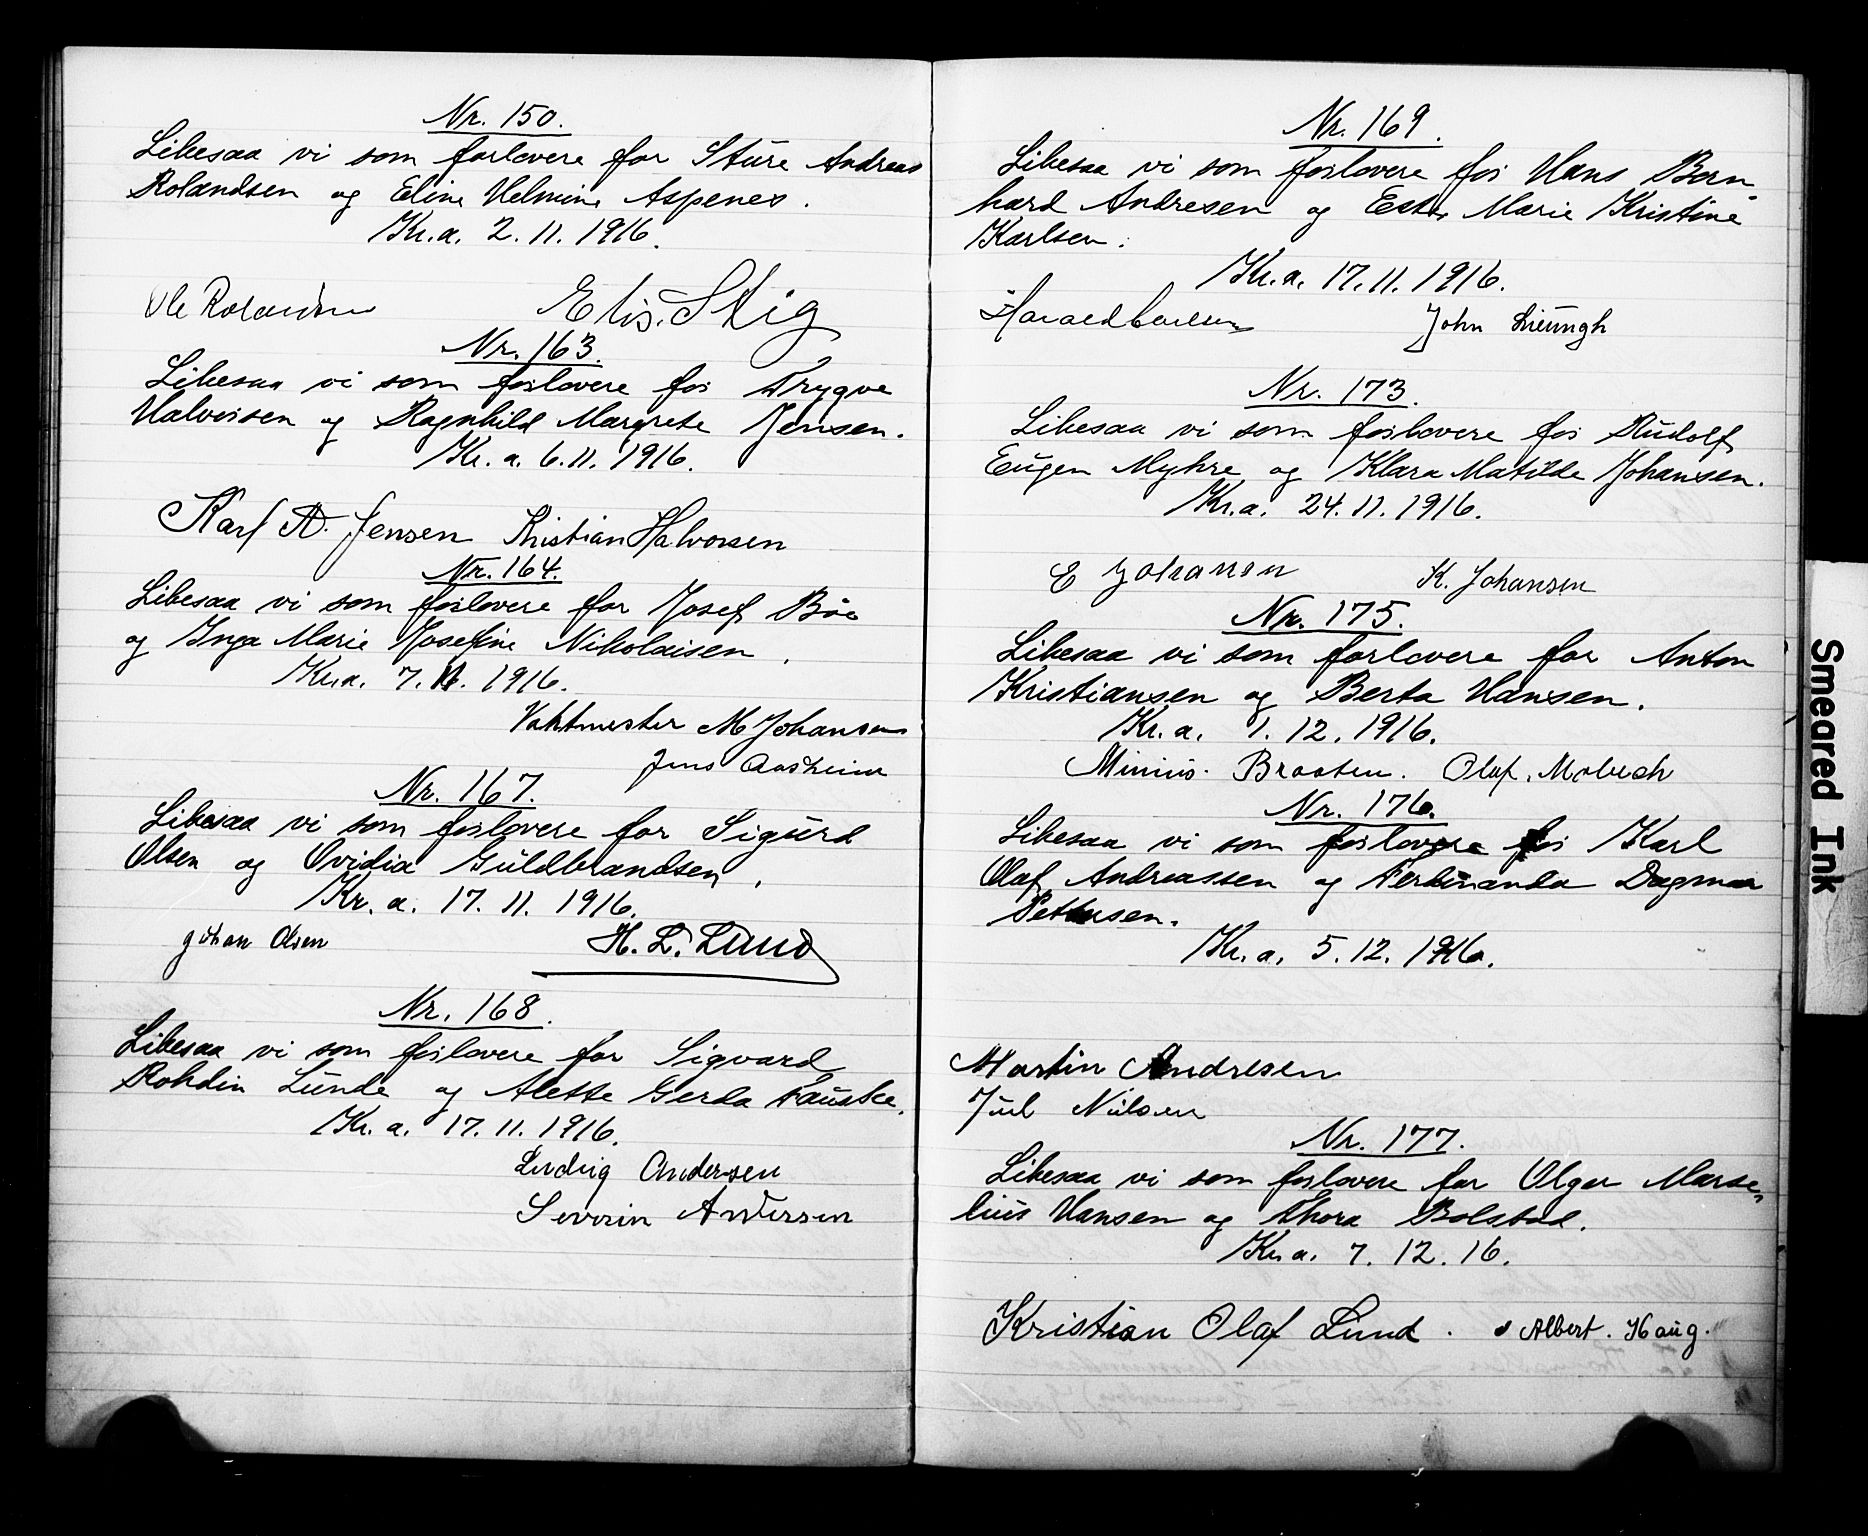 Nr. 150.
Likesaa vi som forlovere for Sture Andreas
Rolandsen og Eline Helmine Aspenes.
Kr.a. 2. 11. 1916.
Ole Rolandsen Elis. Stig
Nr. 163.
Likesaa vi som forlovere for Trygve
Halvorsen og Ragnhild Margrete Jensen.
Kr. a. 6. 11. 1916.
Karl A. Jensen Kristian Halvorsen
Nr. 164.
Likesaa vi som forlovere for Josef Böe
og Inga Marie Josefine Nikolaisen.
Kr.a. 7. 11. 1916.
Vaktmester M Johansen
Jens Aasheim
Nr. 167.
Likesaa vi som forlovere for Sigurd
Olsen og Ovidia Guldbrandsen.
Kr. a. 17. 11. 1916.
Johan Olsen H. L. Lund
Nr. 168.
Likesaa vi som forlovere for Sigvard
Rohdin Lunde og Alette Gerda Fauske.
Kr. a. 17. 11. 1916.
Ludvig Andersen
Severin Andersen
Nr. 169.
Likesaa vi som forlovere for Hans Bern
hard Andresen og Ester Marie Kristine
Karlsen.
Kr.a. 17. 11. 1916.
Harald Carlsen John Lieungh
Nr. 173.
Likesaa vi som forlovere for Rudolf
Eugen Myhre og Klara Matilde Johansen.
Kr.a. 24. 11. 1916.
E Johansen K. Johansen
Nr. 175.
Likesaa vi som forlovere for Anton
Kristiansen og Berta Hansen.
Kr. a. 1. 12. 1916.
Minius. Braaten. Olaf. Mobech
Nr. 176.
Likesaa vi som forlovere for Karl
Olaf Andreassen og Ferdinanda Dagmar
Pettersen.
Kr. a. 5. 12. 1916.
Martin Andresen
Juul Nielsen
Nr. 177.
Likesaa vi som forlovere for Olgar Marse
lius Hansen og Thora Bolstad.
Kr. a. 7. 12. 16.
Kristian Olaf Lund. Albert. Haug.
Smeared Ink